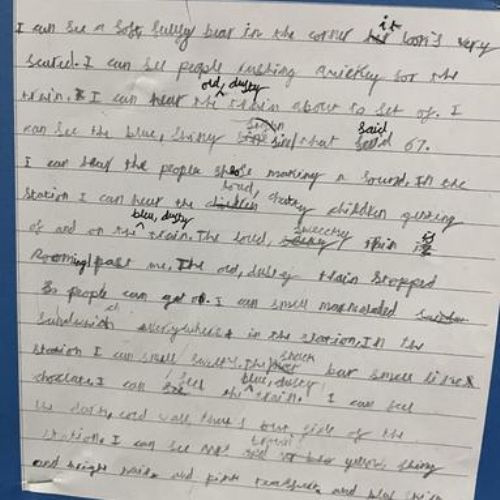 I can see a soft fully bear in the corner it looks very
scared. I can see people rushing quickley for the
train. I can hear the old, dusty train about to set of. I
can see the blue, shiney sign that said 67.
I can hear the people shose making a sound. In the
station I can hear the loud, chatty children geting
of and on the blue, dusty train. The loud, train is
Rooming past me. The old, dustey train stopped
So people can get o. I can smell marmaladed
sandwich everywhere in the station. In the
station I can smell sweets. The snack bar smells like
choclate. I can feel the blue, dusty train. I can feel
the dark, cold wall, there's side of the
station. I can see yellow, shiny
and bright and pink and